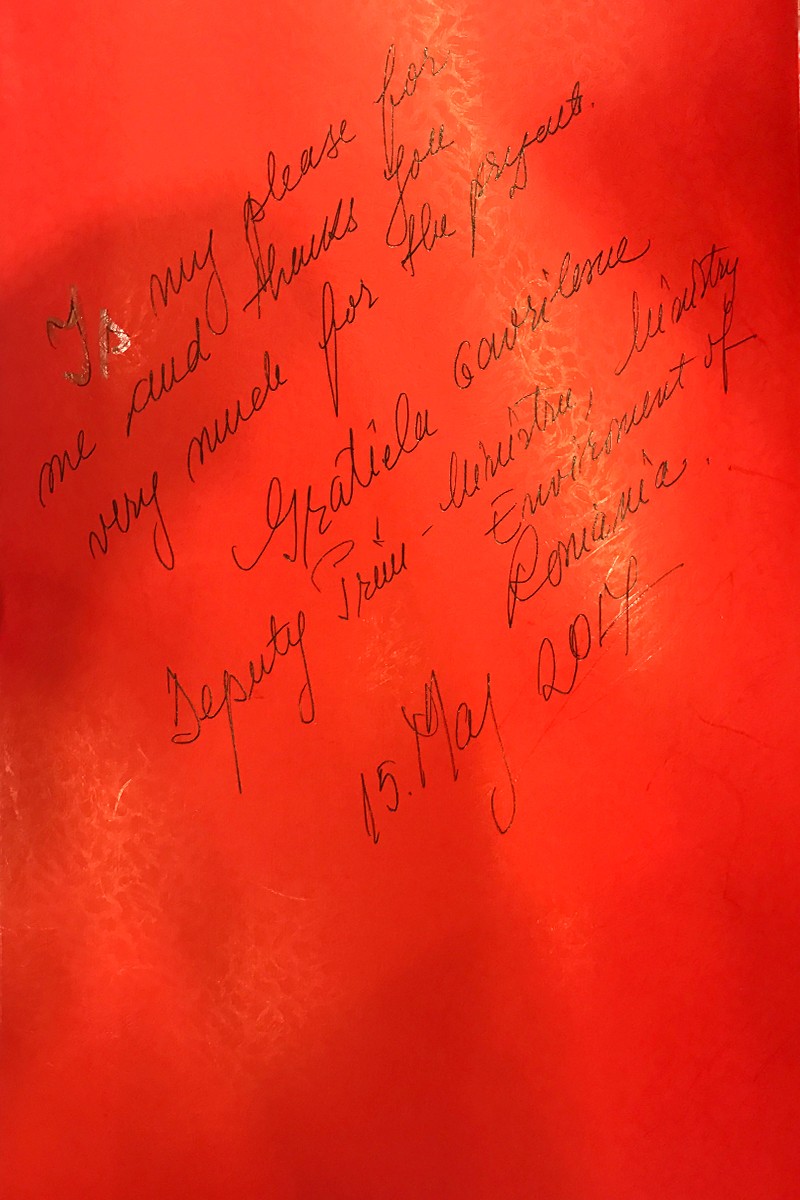 Is my please for
me and thanks you
very much for the proyects.
Gratiela Gavrilescu
Deputy Prim-Ministru, Ministry
Enviroment of
Romania.
15. Maj 2017